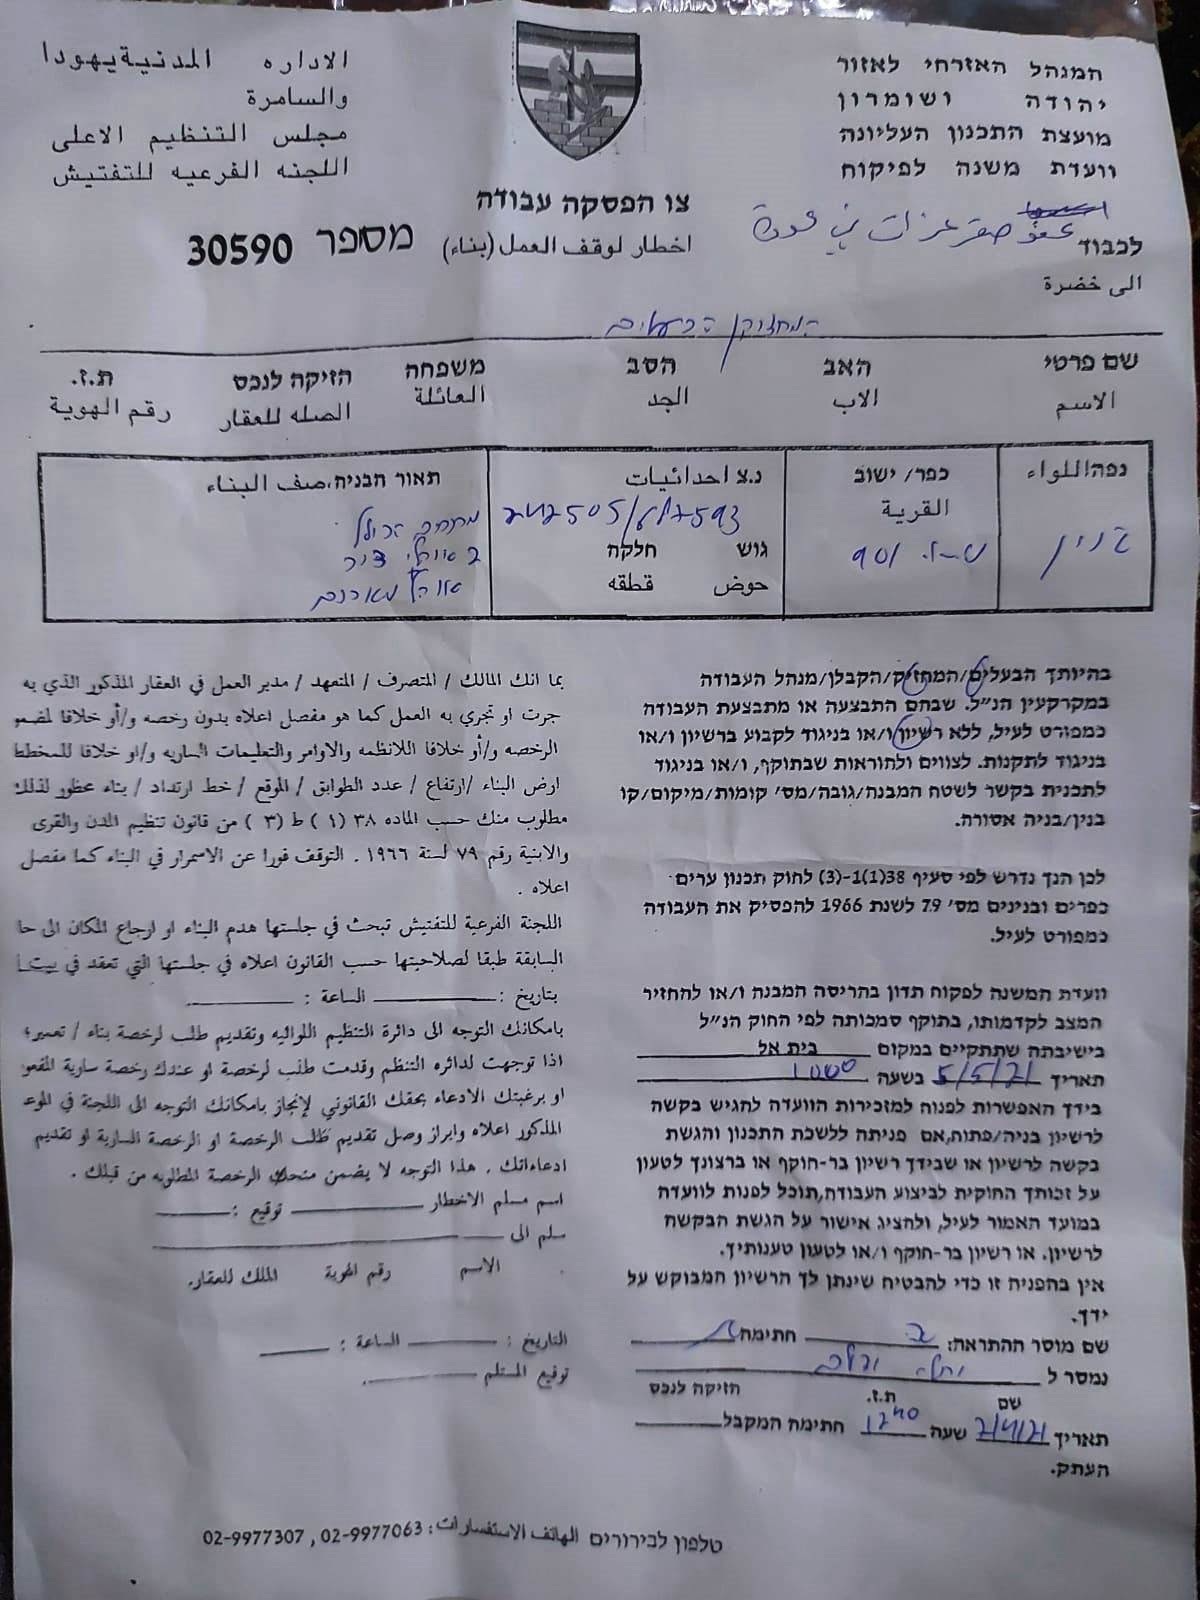 המנהל האזרחי לאזור
יהודה ושומרון
מועצת התכנון העליונה
וועדת משנה לפיקוח
الاداره المدنية يهودا
والسامرة
مجلس التنظيم الاعلى
اللجنه الفرعيه للتفتيش
צו הפסקה עבודה
اخطار لوقف العمل (بناء) מספר 30590
לכבוד
الى خضرة
שם פרטי האב הסב משפחה הזיקה לנכס ת.ז.
الاسم الاب الجد العائلة الصله للعقار رقم الهوية
נפה اللواء
ג'נין
כפר/ ישוב
القرية
נ.צ احداثيات
גוש חלקה
حوض قطقه
תאור הבניה. صف البناء
בהיותך הבעלים/המחזיק/הקבלן/מנהל העבודה
במקרקעין הנ"ל. שבהם התבצעה או מתבצעת העבודה
כמפורט לעיל, ללא רשיון ו/או בניגוד לקבוע ברשיון ו/או
בניגוד לתקנות. לצווים ולהוראות שבתוקף, ו/או בניגוד
לתכנית בקשר לשטח המבנה/גובה/מס' קומות/מיקום/קו
בנין/בניה אסורה.
לכן הנך נדרש לפי סעיף 38(1)1-(3) לחוק תכנון ערים
כפרים ובנינים מס' 79 לשנת 1966 להפסיק את העבודה
כמפורט לעיל.
וועדת המשנה לפקוח תדון בהריסה המבנה ו/או להחזיר
המצב לקדמותו, בתוקף סמכותה לפי החוק הנ"ל
בישיבתה שתתקיים במקום בית אל
תאריך 5/5/21 בשעה 10:00
בידך האפשרות לפנות למזכירות הוועדה להגיש בקשה
לרשיון בניה/פתוח,אם פניתה ללשכת התכנון והגשת
בקשה לרשיון או שבידך רשיון בר-חוקף או ברצונך לטעון
על זכותך החוקית לביצוע העבודה,תוכל לפנות לוועדה
במועד האמור לעיל, ולהציג אישור על הגשת הבקשה
לרשיון. או רשיון בר-חוקף ו/או לטעון טענותיך.
אין בהפניה זו כדי להבטיח שינתן לך הרשיון המבוקש על
ידך.
שם מוסר ההתראה: חתימה
נמסר ל
שם ת.ז. הזיקה לנכס
תאריך שעה 12:40 חתימה המקבל
העתק.
بما انك المالك / المتصرف / المتعهد / مدير العمل في العقار المذكور الذي به
جرت او تجري به العمل كما هو مفصل اعلاه بدون رخصه و/أو خلافا لمضمو
الرخصه و/أو خلافا اللانظمه والاوامر والتعليمات الساريه و/او خلافا للمخطط
ارض البناء /ارتفاع / عدد الطوابق / الموقع / خط ارتداد / بناء عظور لذلك
مطلوب منك حسب الماده ٣٨ (١) ط (٣) من قانون تنظيم المدن والقرى
والابنية رقم ٧٩ لسنة ١٩٦٦ . التوقف فورا عن الاسمرار في البناء كما مفصل
اعلاه .
اللجنة الفرعية للتفتيش تبحث في جلستها هدم البناء او ارجاع المكان الى حا
السابقة طبقا لصلاحيتها حسب القانون اعلاه في جلستها التي تعقد في بيت
بتاريخ : الساعة :
بامكانك التوجه الى دائرة التنظيم اللوائيه وتقديم طلب لرخصة بناء / تعمير؛
اذا توجهت لدائره التنظم وقدمت طلب لرخصة او عندك رخصة سارية المفعو
او برغبتك الادعاء بحقك القانوني لإنجاز بامكانك التوجه الى اللجنة في الموع
المذكور اعلاه وابراز وصل تقديم طلب الرخصة او الرخصة السارية او تقديم
ادعاءاتك . هذا التوجه لا يضمن منحك الرخصة المطلوبه من قبلك .
اسم مسلم الاخطار توقيع :
سلم الى
الاسم رقم الهوية الملك للعقار.
التاريخ : الساعة :
توقيع المستلم
טלפון לבירורים الهاتف الاستفسارات: 02-9977063 , 02-9977307